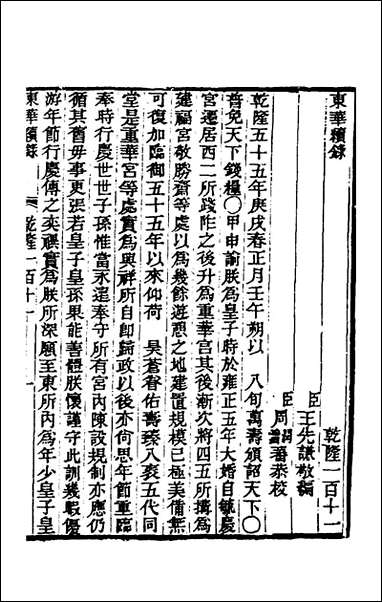 東華續錄 乾隆一百十一
臣王先謙敬編
臣周潤蕃恭校
乾隆五十五年庚戌春正月壬午朔以 八旬萬壽頒詔天下〇
普免天下錢糧〇甲申諭朕為皇子時於雍正五年大婚自毓慶
宮遷居西二所踐阼之後升為重華宮其後漸次將四五所搆為
建福宮敬勝齋等處以為幾餘遊憩之地建置規模已極美備無
可復加臨御五十五年以來仰荷 昊蒼眷佑壽臻八袠五代同
堂是重華宮等處實為興祥所自即歸政以後亦尚思年節重臨
奉時行慶世世子孫惟當永遠奉守所有宮內陳設規制亦應仍
循其舊毋事更張若皇子皇孫果能善體朕懷謹守此訓幾暇優
游年節行慶傳之奕禩實為朕所深願至東所內為年少皇子皇
東華續錄 乾隆一百十一 一